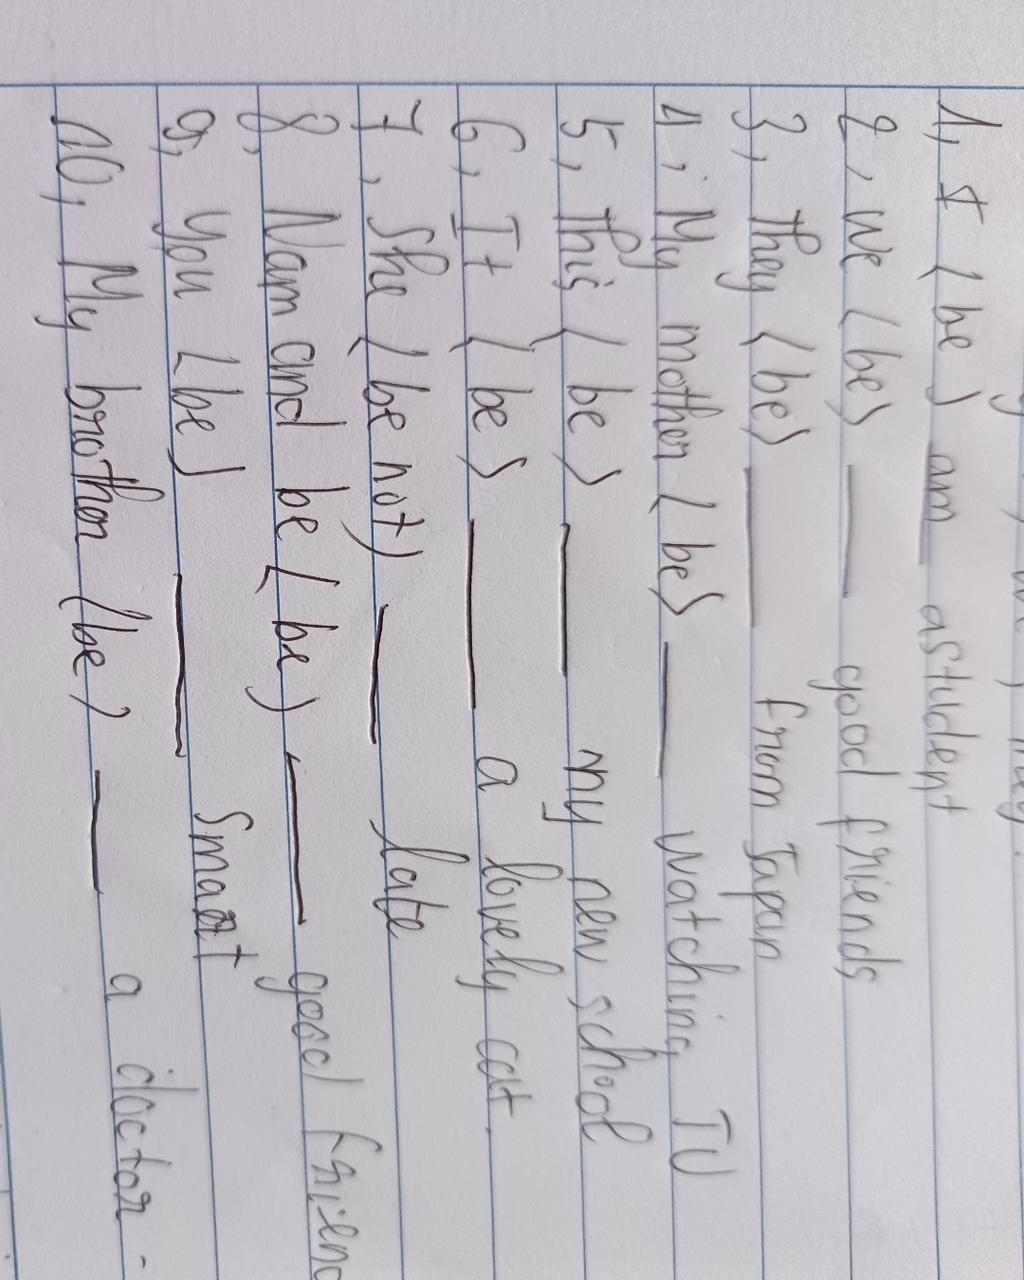 1, I (be) am astudent
2, We (be) ___ good friends
3, they (be) ___ from Japan
4, My mother (be) ___ watching TV
5, this (be) ___ my new school
6, It (be) ___ a lovely cat.
7, She (be not) ___ late
8, Nam and be (be) ___ good frien
9, You (be) ___ Smart
10, My brother (be) ___ a doctor -